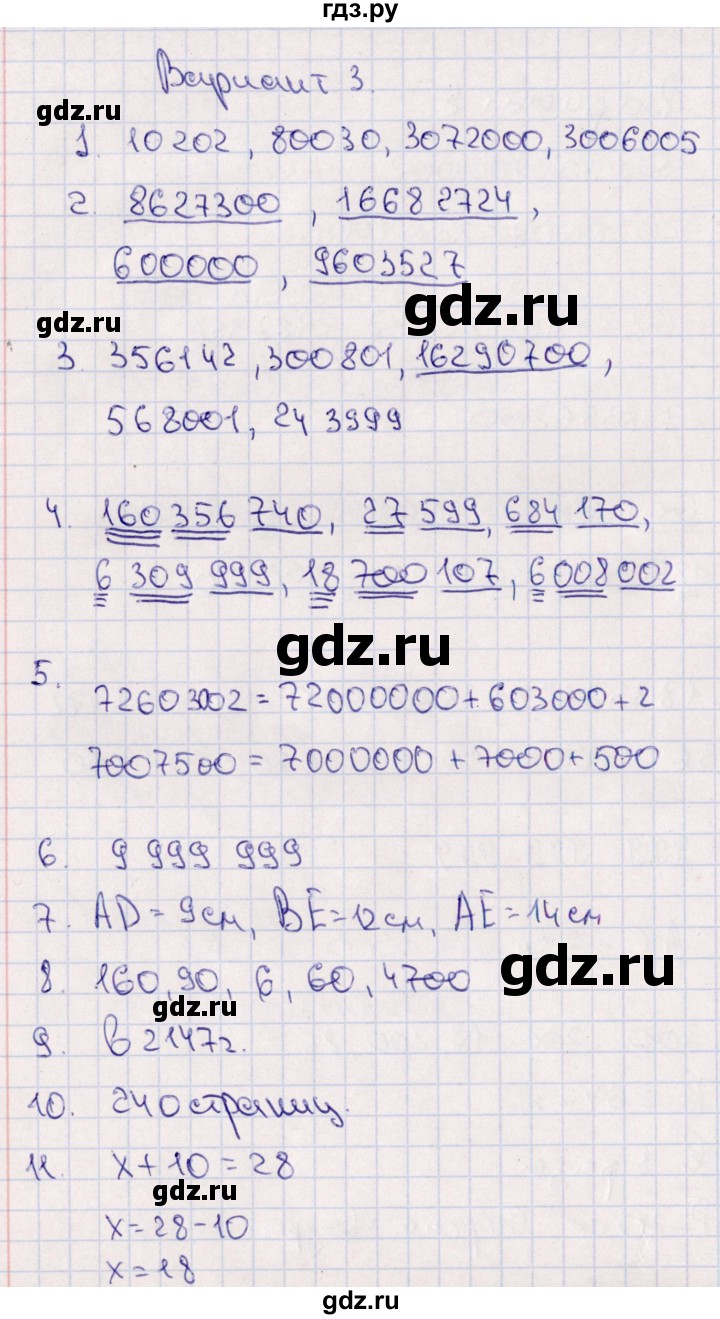 гдз.ру
Вариант 3.
gdz.ru
1. 10202, 80030, 3072000, 3006005
2. 8627300, 16682724,
600000, 9603527
gdz.ru
gdz.ru
3. 356142, 300801, 16290700,
568001, 243999
4. 160 356 740, 27 599, 684 170,
6 309 999, 18 700 107, 6 008 002
gdz.ru
5. 72603002 = 72000000 + 603000 + 2
7007500 = 7000000 + 7000 + 500
6. 9 999 999
7. AD = 9 см, BE = 12 см, AE = 14 см
gdz.ru
8. 160, 90, 6, 60, 4700
gdz.ru
9. в 2147 г.
10. 240 страниц.
gdz.ru
11. x + 10 = 28
gdz.ru
x = 28 - 10
x = 18
gdz.ru